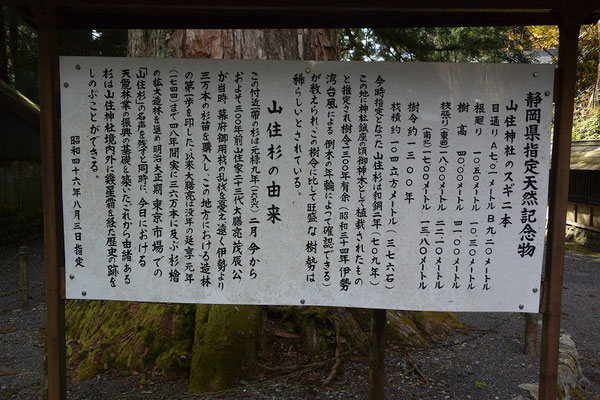 静岡県指定天然記念物
山住神社のスギ二本
目通り A七〇一メートル B九二〇メートル
根廻り 一〇五〇メートル 一〇三〇メートル
樹高 四〇〇〇メートル 四一〇〇メートル
枝張り(東西)一八〇〇メートル 二二一〇メートル
(南北)一七〇〇メートル 一三八〇メートル
樹令約一三〇〇年
材積約一〇四立方メートル(三七六石)
今時指定となった山住杉は和銅二年(七〇九年)
この地に神社鎮座の頃御神木として植栽されたもの
と推定され樹令一三〇〇年有余(昭和三十四年伊勢
湾台風による倒木の年輪によって確認できる)
が数えられ、この樹令に比して旺盛な樹勢は
稀らしいとされている。
山住杉の由来
この付近一帯の杉は元禄九年(一六九六)二月今から
およそ三〇〇年前山住家二十三代大膳亮茂辰公
が当時幕府御用材の乱伐を憂え遠く伊勢より
三万本の杉苗を購入し、この地方における造林
の第一歩を印した。以来大膳亮は没年の延享元年
(一七四四)まで四八年間実に三六万本に及ぶ杉桧
の拡大造林を進め明治大正期東京市場での
「山住杉」の名声を残すと同時に、今日における
天竜林業の振興の基礎を築いた。これから由緒ある
杉は山住神社境内外に幾星霜を経た歴史の跡を
しのぶことができる。
昭和四十六年八月三日指定